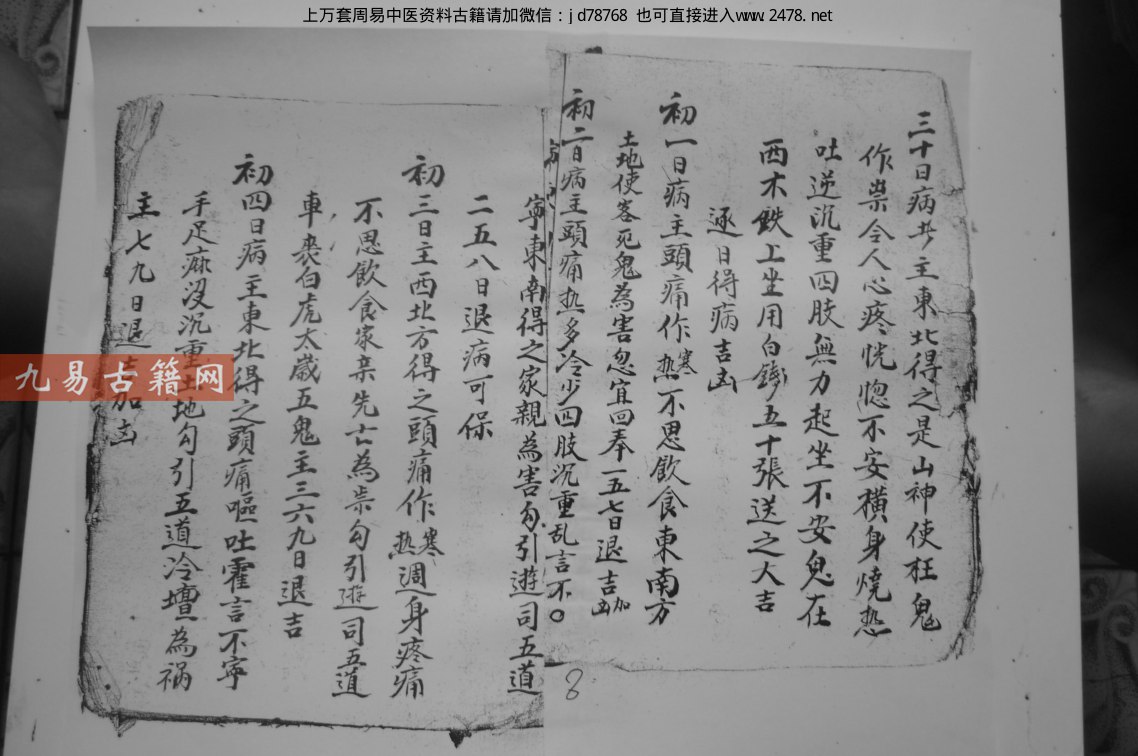 上万套周易中医资料古籍请加微信：jd78768 也可直接进入www.2478.net
三十日病者主東北得之是山神使枉鬼
作祟令人心疼恍惚不安橫身燒热
吐逆沉重四肢無力起坐不安鬼在
西木鉄上坐用白錢五十張送之大吉
逐日得病吉凶
初一日病主頭痛作寒热不思飲食東南方
土地使客死鬼為害忽宜回奉一五七日退吉加凶
初二日病主頭痛热多冷少四肢沉重乱言不〇
寧東南得之家親為害勾引遊司五道
二五八日退病可保
初三日主西北方得之頭痛作寒热週身疼痛
不思飲食家亲先亡為祟勾引遊司五道
車丧白虎太歲五鬼主三六九日退吉
初四日病主東北得之頭痛嘔吐霍言不寧
手足麻沒沉重土地勾引五道冷壇為祸
主七九日退吉加凶
九易古籍网
8